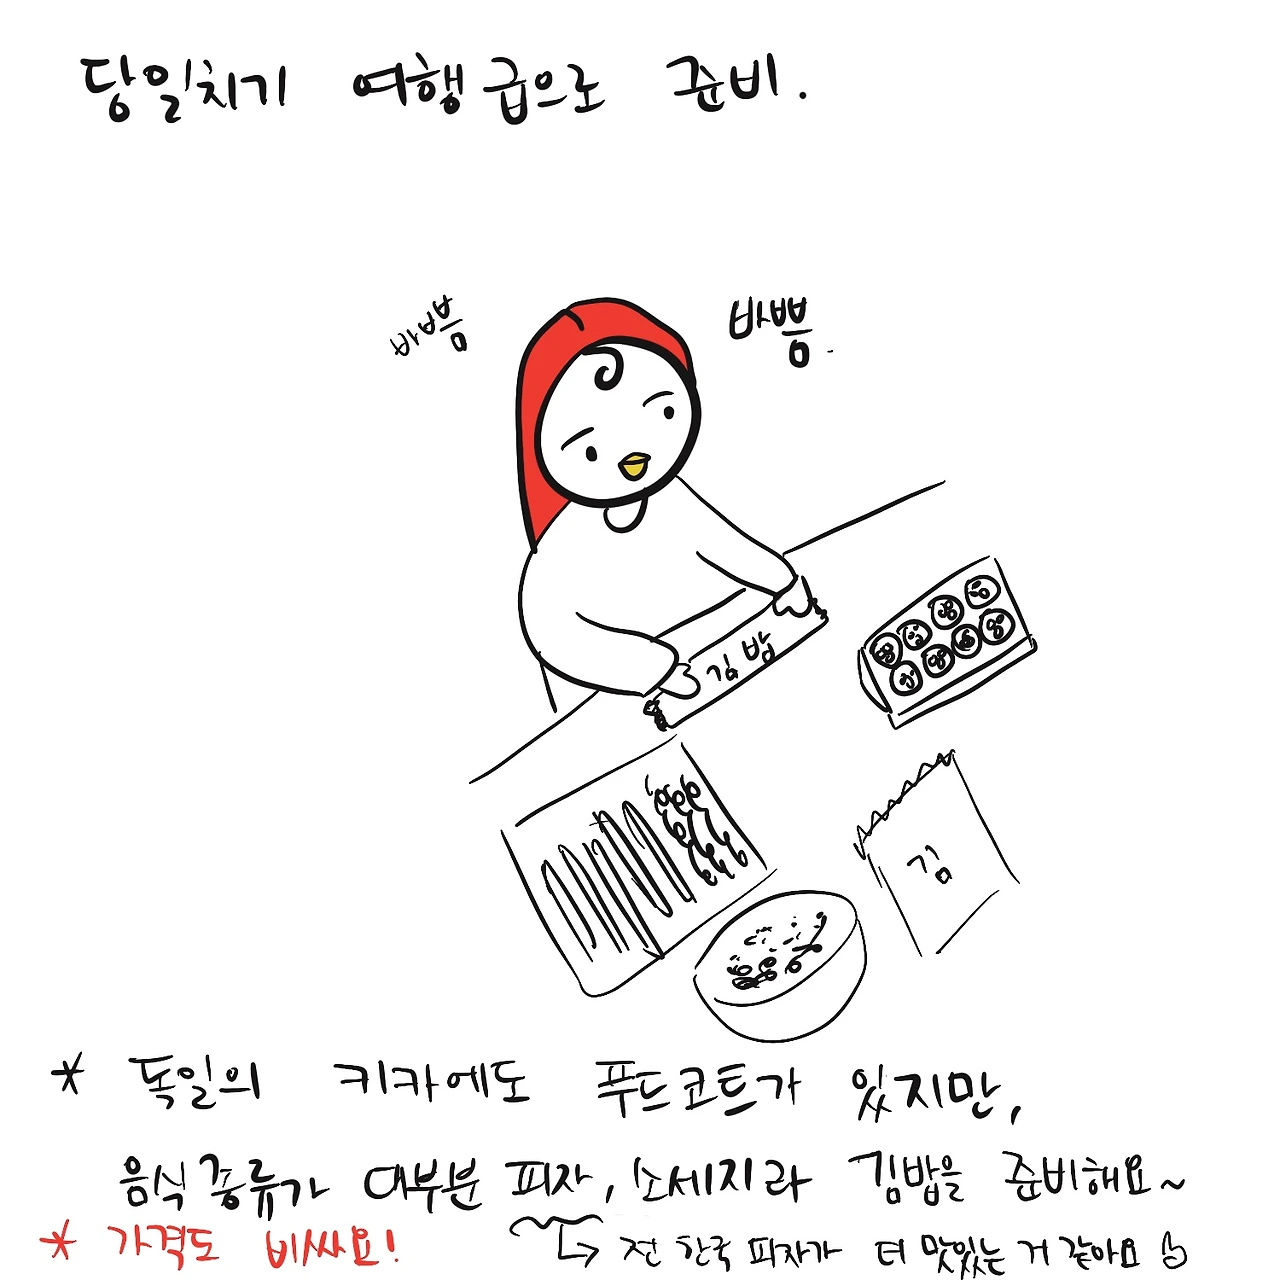 당일치기 여행급으로 준비.
바쁨
바쁨.
김밥
김
* 독일의 키카에도 푸드코트가 있지만,
음식종류가 대부분 피자, 소세지라 김밥을 준비해요~
* 가격도 비싸요!
↳ 전 한국 피자가 더 맛있는 거 같아요